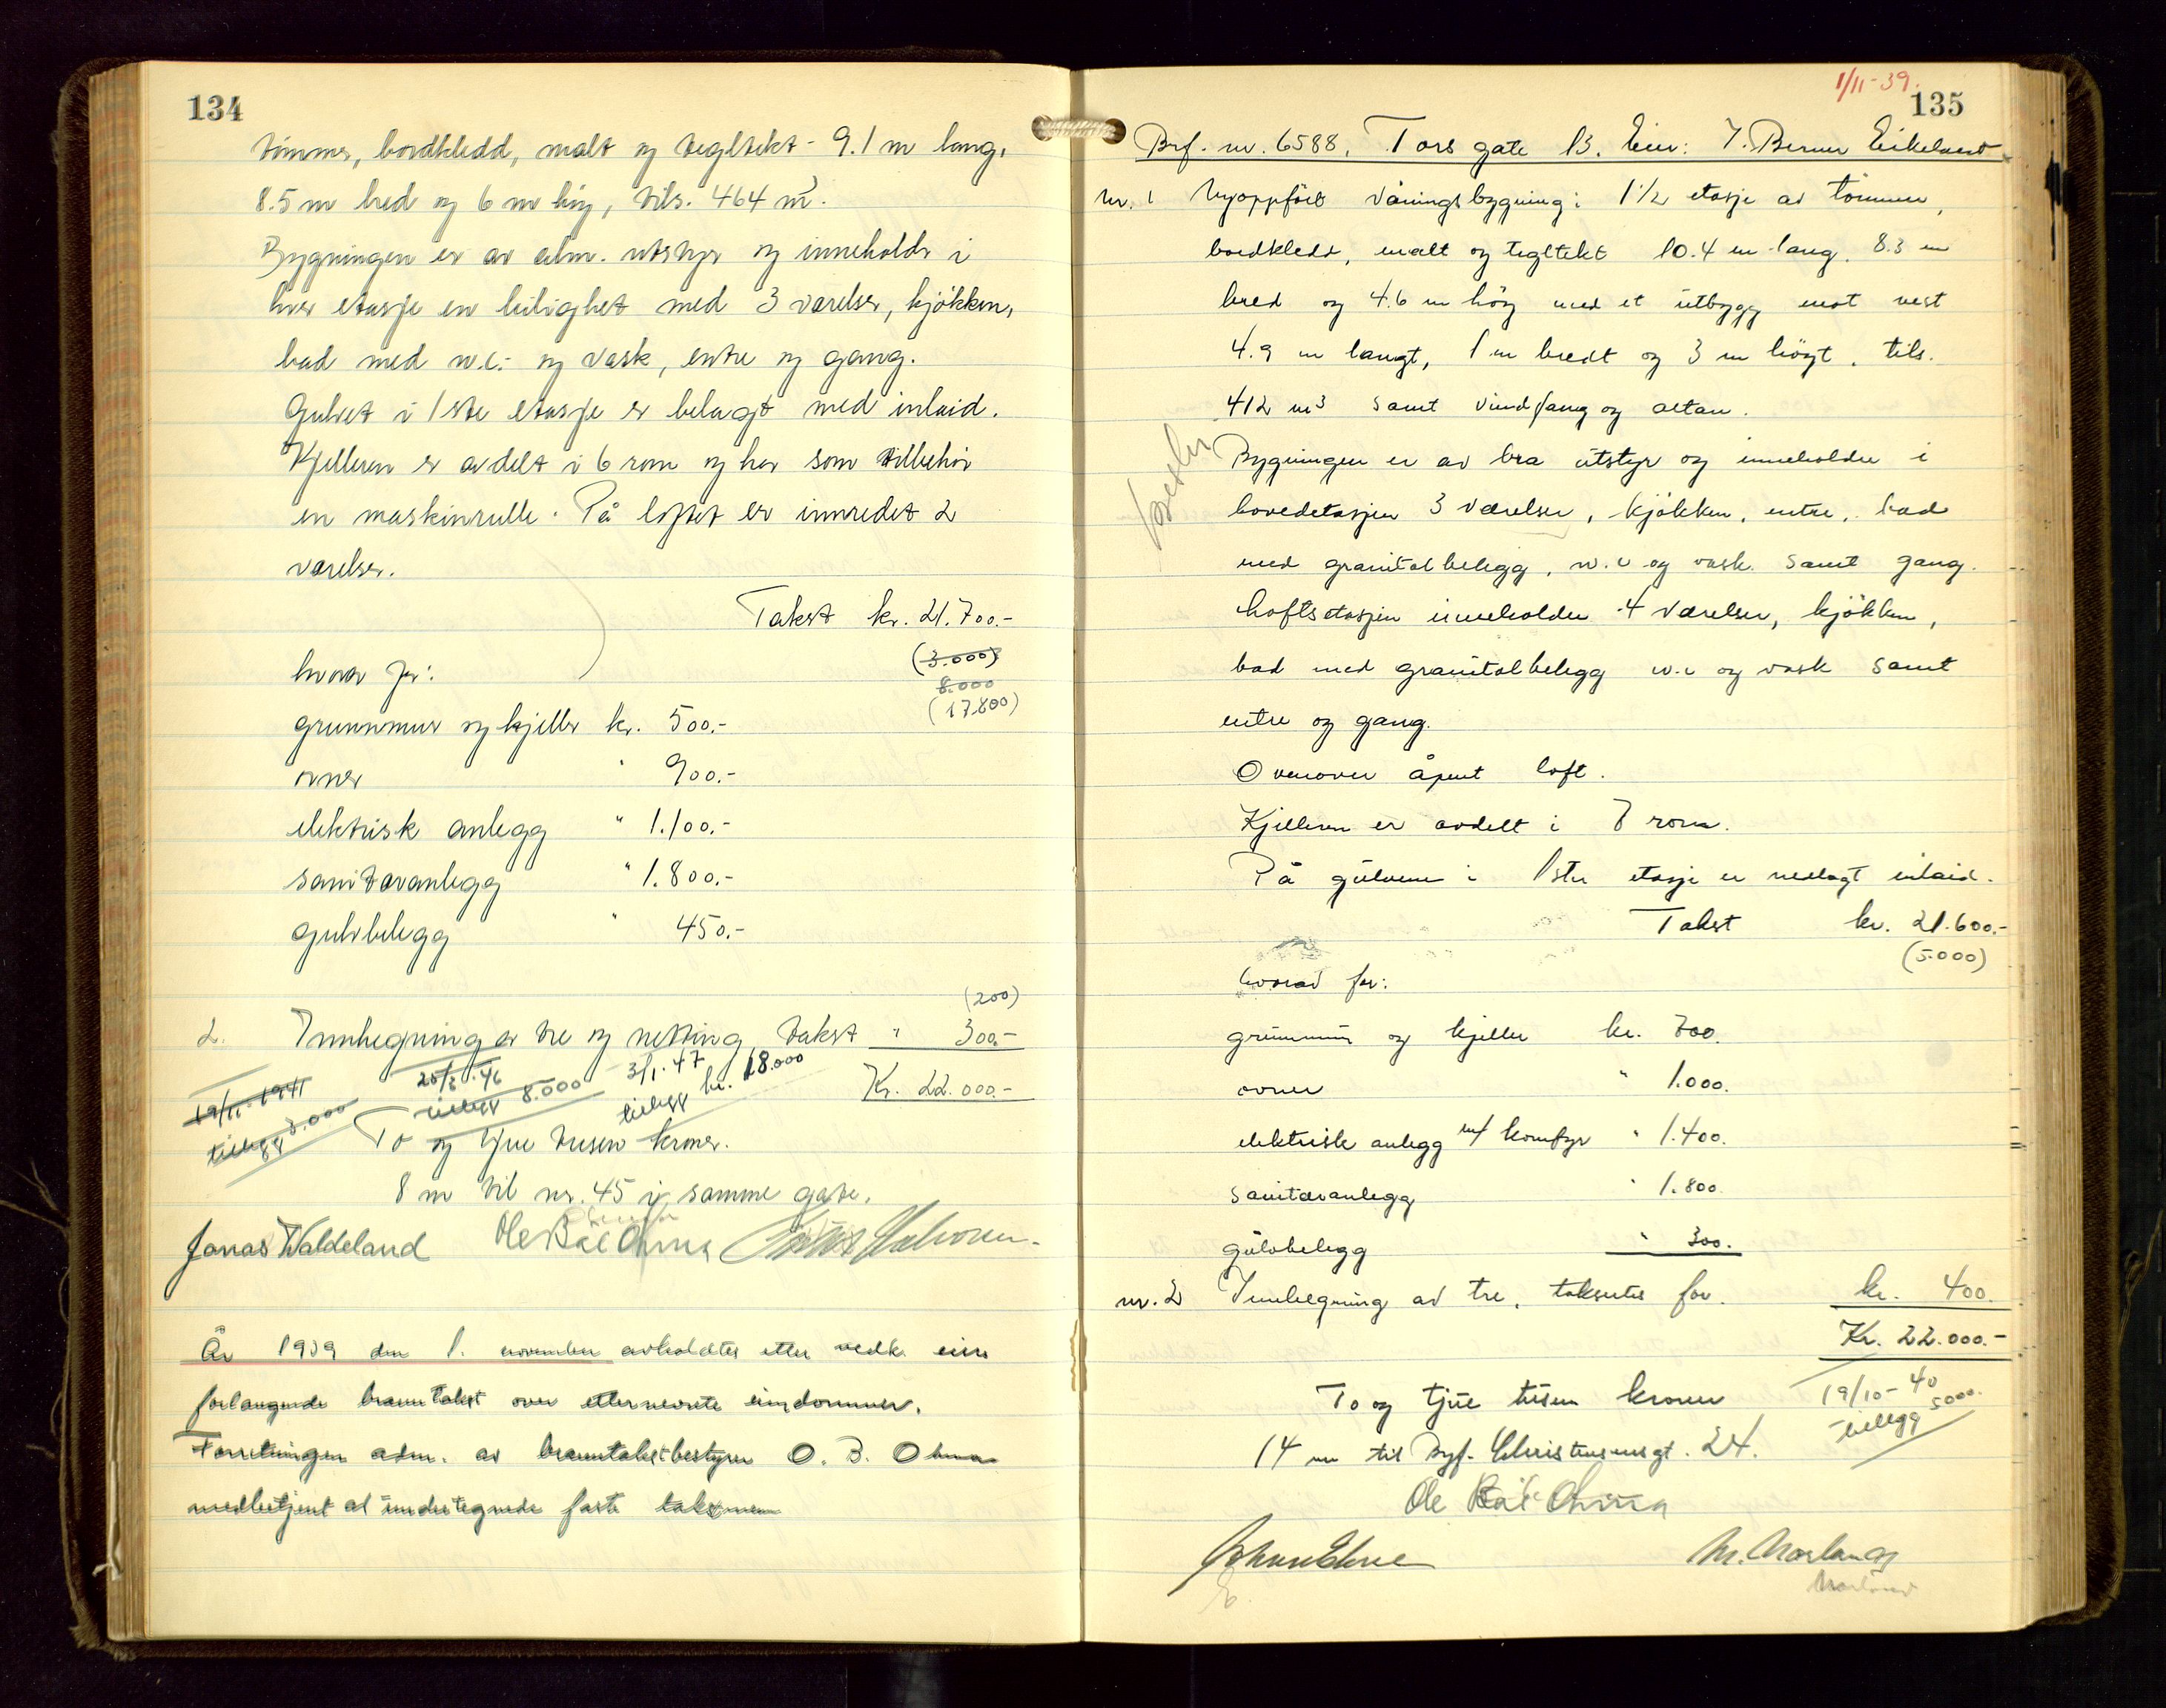 134
tömmer, bordkledd, malt og tegltekt - 9.1 m lang,
8.5 m bred og 6 m høy, tils. 464 m³.
Bygningen er av alm. utstyr og inneholdr i
hver etasje en leilighet med 3 værelser, kjökken,
bad med w.c. og vask, entre og gang.
Gulvet i 1ste etasje er belagt med inlaid.
Kjelleren er avdelt i 6 rom og har som tilbehör
en maskinrulle. På loftet er innredet 2
værelser.
Takst kr. 21.700.-
(3.000)
8.000
(17.800)
hvorav for:
grunnmur og kjeller kr. 500.-
ovner " 900.-
elektrisk anlegg " 1.100.-
sanitæranlegg " 1.800.-
gulvbelegg " 450.-
(200)
2. Innhegning av tre og netting, takst " 300.-
Kr. 22.000.-
19/11-1941
tillegg 3.000
20/3-46
tillegg 8.000
3/1-47
tillegg kr. 18.000
To og tjue tusen kroner.
8 m til nr. 45 i samme gate.
Jonas Waldeland Ole Bæe Ohma
År 1939 den 1. november avholdtes etter vedk. eiers
forlangende branntakst over etternevnte eiendommer.
Forretningen adm. av branntakstbestyrer O. B. Ohma
medbetjent af undertegnede faste takstmenn
1/11-39.
135
Brf. nr. 6588. Tors gate 13. Eier: T. Berner Eikeland
nr. 1 Nyoppfört våningsbygning i 1 1/2 etasje av tömmer,
bordkledd, malt og tegltekt 10.4 m lang, 8.3 m
bred og 4.6 m höy med et utbygg mot vest
4.9 m langt, 1 m bredt og 3 m höyt, tils.
412 m³ samt vindfang og altan.
Bygningen er av bra utstyr og inneholder i
hovedetasjen 3 værelser, kjökken, entre, bad
med granitolbelegg, w.c og vask samt gang.
Loftsetasjen inneholder 4 værelser, kjökken,
bad med granitolbelegg w.c og vask samt
entre og gang.
Ovenover åpent loft.
Kjelleren er avdelt i 7 rom.
På gulvene i 1ste etasje er nedlagt inlaid.
Takst kr. 21.600.-
(5.000)
hvorav for:
grunnmur og kjeller kr. 700.
ovner " 1.000.
elektrisk anlegg m/ komfyr " 1.400.
sanitæranlegg " 1.800.
gulvbelegg " 300.
nr. 2 Innhegning av tre, takseres for kr. 400.
Kr. 22.000.-
To og tjue tusen kroner
19/10-40
tillegg 5000.
14 m til Byf. Christensensgt. 24.
Ole Bæe Ohma
M. Norland
Norland